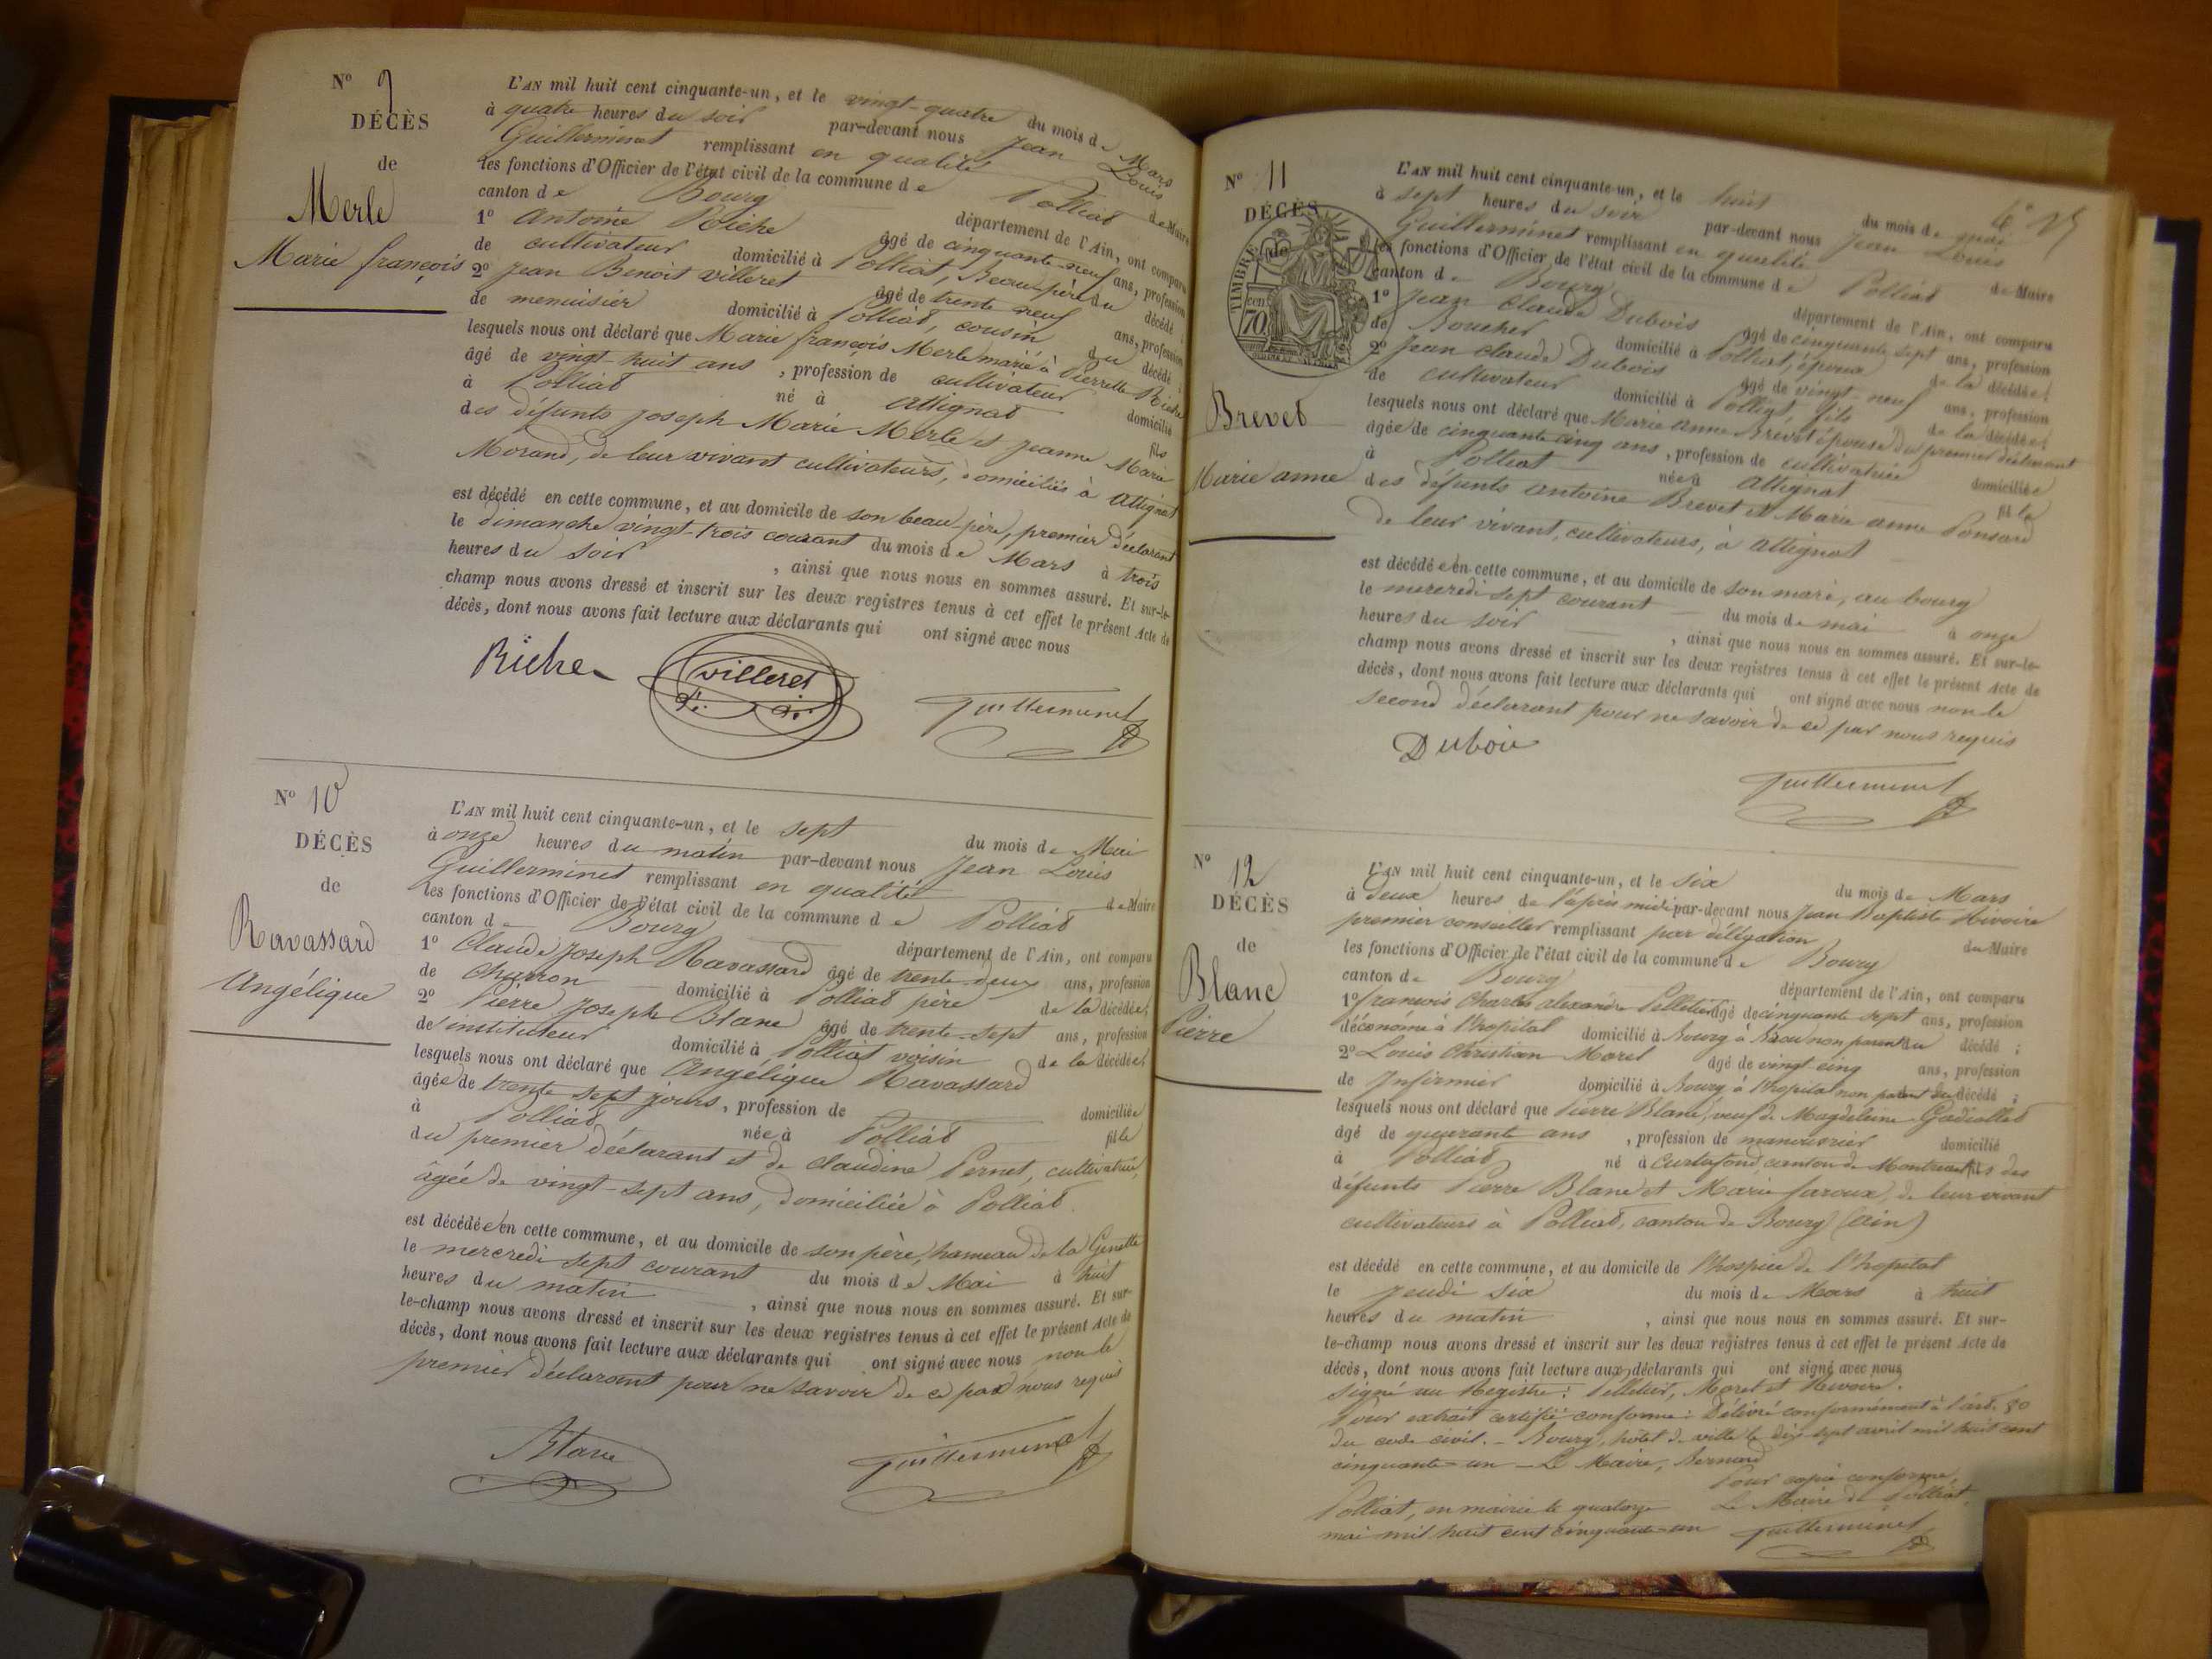 N° 9
DÉCÈS
de
Merle
Marie françois
L'AN mil huit cent cinquante-un, et le vingt-quatre du mois de Mars
à quatre heures du soir par-devant nous Jean Louis
Guillerminet remplissant en qualité de Maire
les fonctions d'Officier de l'état civil de la commune de Polliat
canton de Bourg département de l'Ain, ont comparu
1° Antoine Riche âgé de cinquante-neuf ans, profession
de cultivateur domicilié à Polliat, Beau-père du décédé ;
2° Jean Benoit Villeret âgé de trente neuf ans, profession
de menuisier domicilié à Polliat, cousin du décédé ;
lesquels nous ont déclaré que Marie françois Merle marié à Pierrette Riche
âgé de vingt-huit ans, profession de cultivateur domicilié
à Polliat né à Attignat fils
des défunts Joseph Marie Merle et Jeanne Marie
Morand, de leur vivant cultivateurs, domiciliés à Attignat
est décédé en cette commune, et au domicile de son beau-père, premier déclarant
le dimanche vingt-trois courant du mois de Mars à trois
heures du soir, ainsi que nous nous en sommes assuré. Et sur-le-
champ nous avons dressé et inscrit sur les deux registres tenus à cet effet le présent Acte de
décès, dont nous avons fait lecture aux déclarants qui ont signé avec nous
Riche villeret Guillerminet
N° 10
DÉCÈS
de
Ravassard
Angélique
L'AN mil huit cent cinquante-un, et le sept du mois de Mai
à onze heures du matin par-devant nous Jean Louis
Guillerminet remplissant en qualité de Maire
les fonctions d'Officier de l'état civil de la commune de Polliat
canton de Bourg département de l'Ain, ont comparu
1° Claude Joseph Ravassard âgé de trente-deux ans, profession
de Charron domicilié à Polliat père de la décédée;
2° Pierre Joseph Blanc âgé de trente-sept ans, profession
de instituteur domicilié à Polliat voisin de la décédée;
lesquels nous ont déclaré que Angélique Ravassard
âgée de trente sept jours, profession de domiciliée
à Polliat née à Polliat fille
du premier déclarant et de claudine Pernet, cultivatrice,
âgée de vingt-sept ans, domiciliée à Polliat.
est décédée en cette commune, et au domicile de son père, hameau de la Genette
le mercredi sept courant du mois de Mai à huit
heures du matin, ainsi que nous nous en sommes assuré. Et sur-
le-champ nous avons dressé et inscrit sur les deux registres tenus à cet effet le présent Acte de
décès, dont nous avons fait lecture aux déclarants qui ont signé avec nous non le
premier déclarant pour ne savoir de ce par nous requis
Blanc Guillerminet
N° 11
DÉCÈS
de
TIMBRE
70
Brevet
Marie anne
L'AN mil huit cent cinquante-un, et le huit du mois de mai
à sept heures du soir par-devant nous Jean Louis
Guillerminet remplissant en qualité de Maire
les fonctions d'Officier de l'état civil de la commune de Polliat
canton de Bourg département de l'Ain, ont comparu
1° Jean Claude Dubois âgé de cinquante sept ans, profession
de Boucher domicilié à Polliat, époux de la décédée;
2° Jean Claude Dubois âgé de vingt-neuf ans, profession
de cultivateur domicilié à Polliat, fils de la décédée;
lesquels nous ont déclaré que Marie anne Brevet épouse du premier déclarant
âgée de cinquante cinq ans, profession de cultivatrice domiciliée
à Polliat née à Attignat fille
des défunts Antoine Brevet et Marie anne Ponsard
de leur vivant, cultivateurs, à Attignat
est décédée en cette commune, et au domicile de son mari, au bourg
le mercredi sept courant du mois de mai à onze
heures du soir, ainsi que nous nous en sommes assuré. Et sur-le-
champ nous avons dressé et inscrit sur les deux registres tenus à cet effet le présent Acte de
décès, dont nous avons fait lecture aux déclarants qui ont signé avec nous non le
second déclarant pour ne savoir de ce par nous requis
Dubois
Guillerminet
N° 12
DÉCÈS
de
Blanc
Pierre
L'AN mil huit cent cinquante-un, et le six du mois de Mars
à deux heures de l'après midi par-devant nous Jean Baptiste
premier conseiller remplissant par délégation du Maire
les fonctions d'Officier de l'état civil de la commune de Bourg
canton de Bourg département de l'Ain, ont comparu
1° françois Charles alexandre Pelletier âgé de cinquante sept ans, profession
d'économe à l'hopital domicilié à Bourg non parent du décédé ;
2° Louis Christian Morel âgé de vingt-cinq ans, profession
de Infirmier domicilié à Bourg à l'hopital non parent du décédé ;
lesquels nous ont déclaré que Pierre Blanc, veuf de Magdeleine Gadiollet
âgé de quarante ans, profession de manouvrier domicilié
à Polliat né à Curtafond, canton de Montrevel fils des
défunts Pierre Blanc et Marie faroux, de leur vivant
cultivateurs à Polliat, canton de Bourg (Ain)
est décédé en cette commune, et au domicile de l'hospice de l'hopital
le Jeudi six du mois de Mars à huit
heures du matin, ainsi que nous nous en sommes assuré. Et sur-
le-champ nous avons dressé et inscrit sur les deux registres tenus à cet effet le présent Acte de
décès, dont nous avons fait lecture aux déclarants qui ont signé avec nous
Signé au Registre : Pelletier, Morel et
Pour extrait certifié conforme : Délivré conformément à l'art. 80
du code civil. - Bourg, hôtel de ville le dix-sept avril mil huit cent
cinquante-un - Le Maire, Bernard
Pour copie conforme,
Polliat, en mairie le quatorze Le Maire de Polliat,
mai mil huit cent cinquante-un Guillerminet